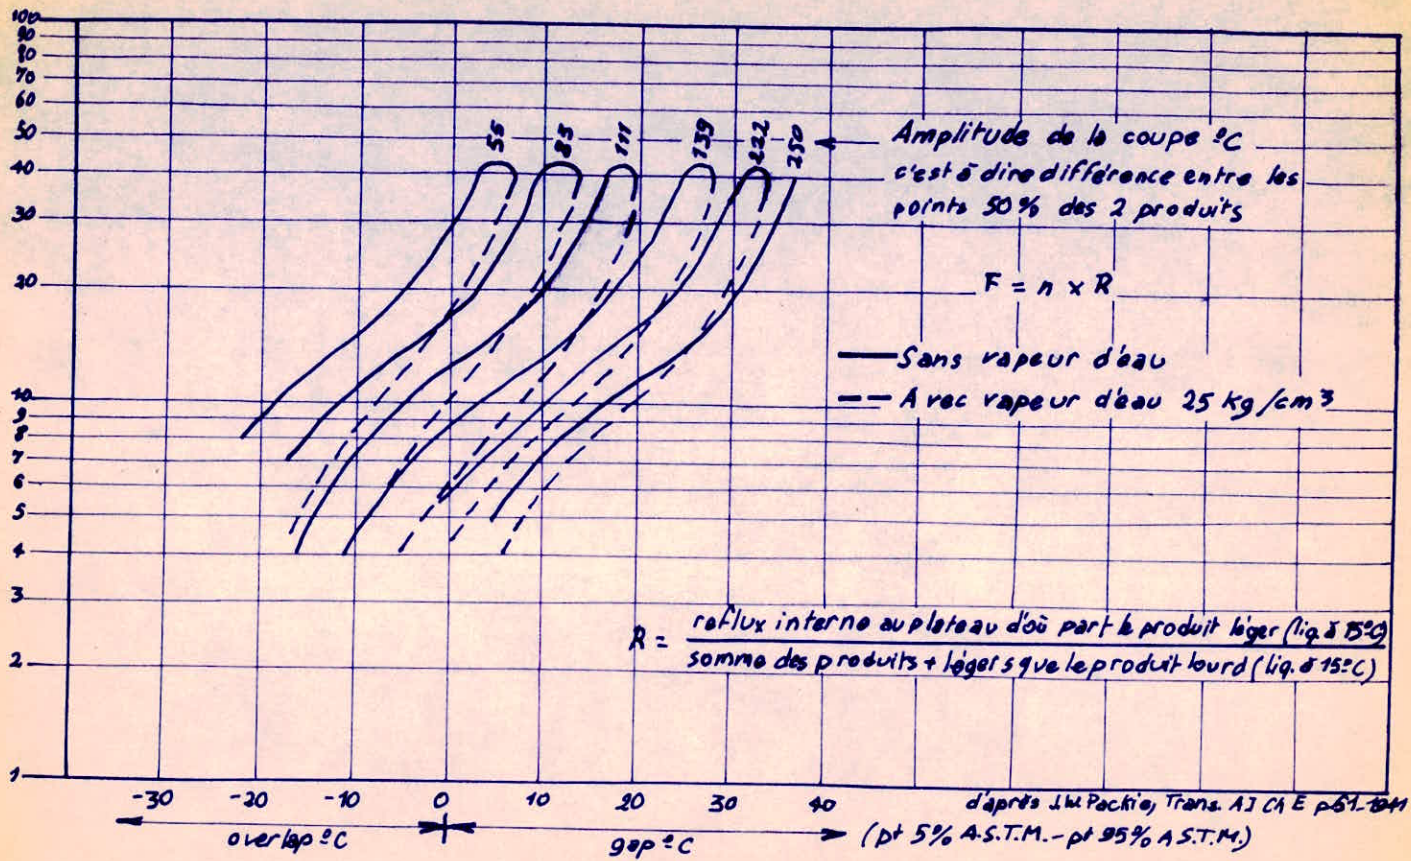 100
90
80
70
60
50
40
30
20
10
9
8
7
6
5
4
3
2
1
55
83
111
139
222
250
Amplitude de la coupe ºC
c'est à dire différence entre les
points 50% des 2 produits
F = n x R
Sans vapeur d'eau
Avec vapeur d'eau 25 kg/cm³
R = reflux interne au plateau d'où part le produit léger (liq. à 15ºC)
somme des produits + légers que le produit lourd (liq. à 15ºC)
-30 -20 -10 0 10 20 30 40
d'après J.W. Packie, Trans. A I Ch E p 51-1941
overlap ºC gap ºC (pt 5% A.S.T.M. - pt 95% A.S.T.M.)